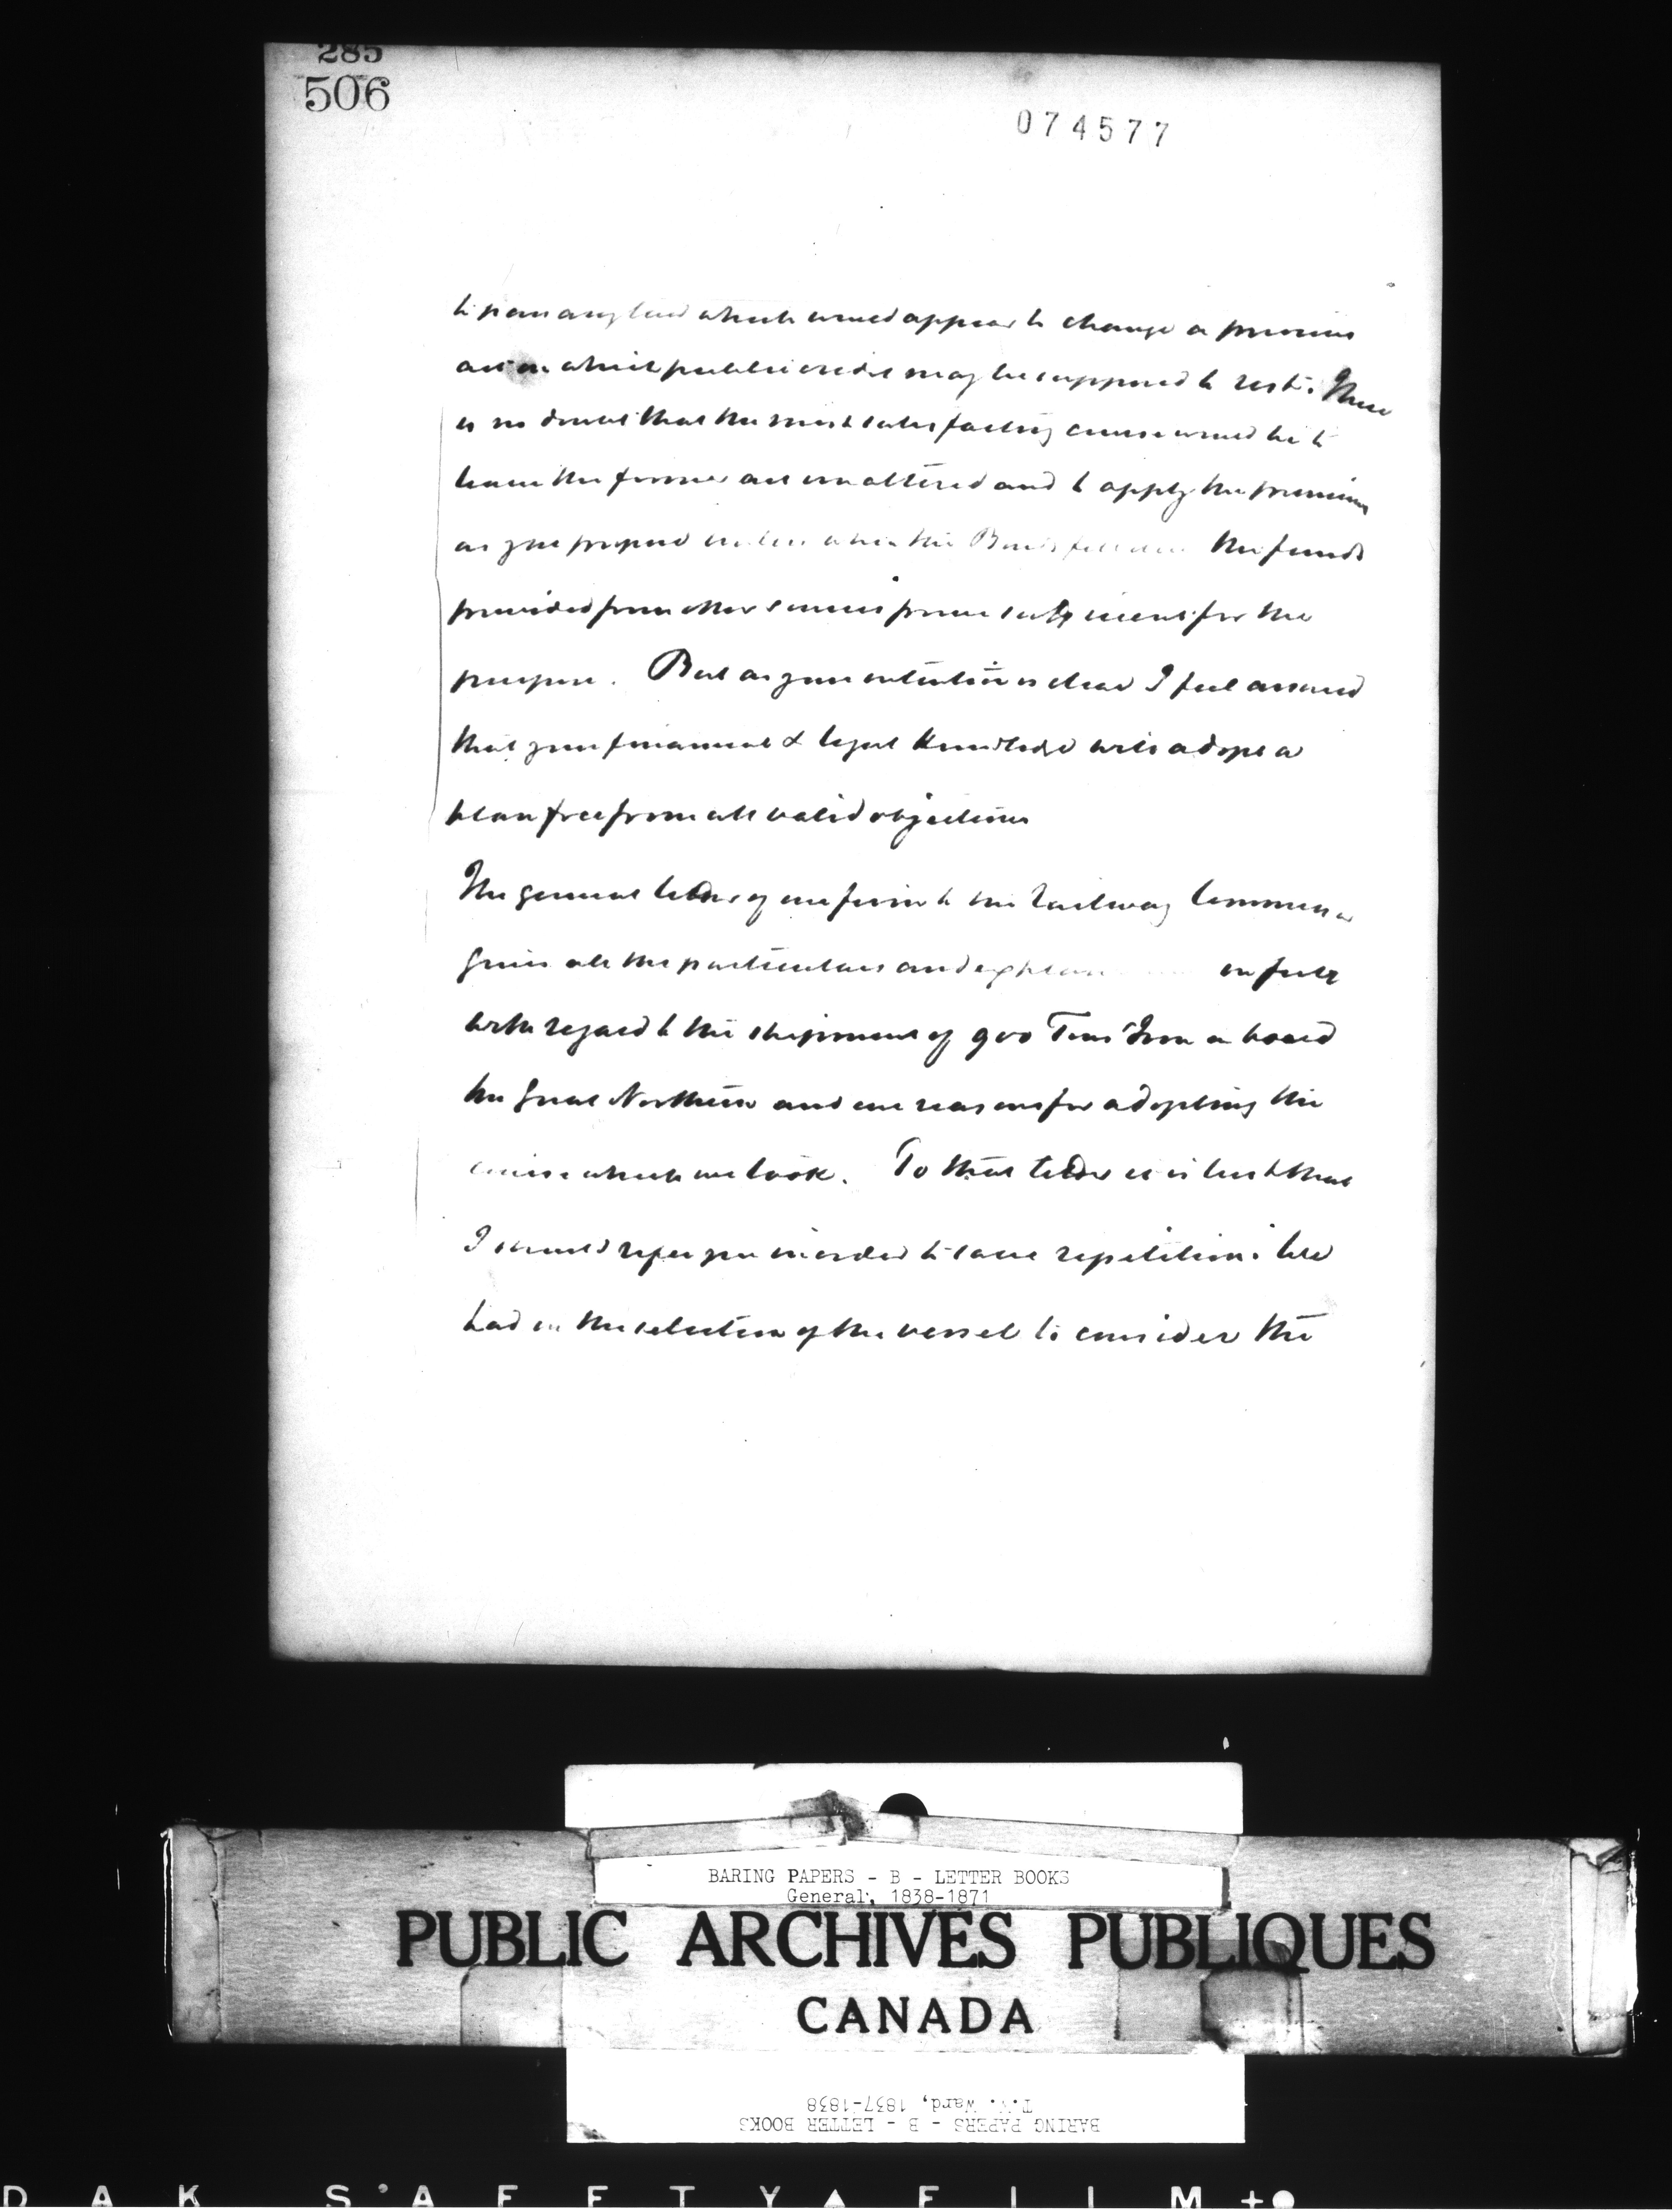 285
506
074577
to pass any law which would appear to change a previous
act on which public credit may be supposed to rest. There
is no doubt that the most satisfactory course would be to
leave the former act unaltered and to apply the premium
as you propose unless when the Bonds fell due the funds
provided from other sources prove insufficient for the
purpose. But as your intention is clear I feel assured
that your financial & legal knowledge will adopt a
plan free from all valid objections
The general letter of our firm to the Railway Commrs
gives all the particulars and in full
with regard to the shipment of 900 Tons Iron on board
the Great Northern and our reasons for adopting the
course which we took. To that letter it is best that
I should refer you in order to save repetition. We
had in the selection of the vessel to consider the
BARING PAPERS - B - LETTER BOOKS
General, 1838-1871
PUBLIC ARCHIVES PUBLIQUES
CANADA
BARING PAPERS - B - LETTER BOOKS
T.W. Ward, 1837-1838
DAK SAFETY FILM